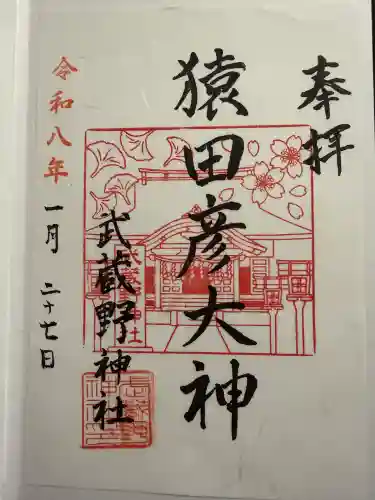 奉拝
猿田彦大神
武蔵野神社
令和八年
一月二十七日